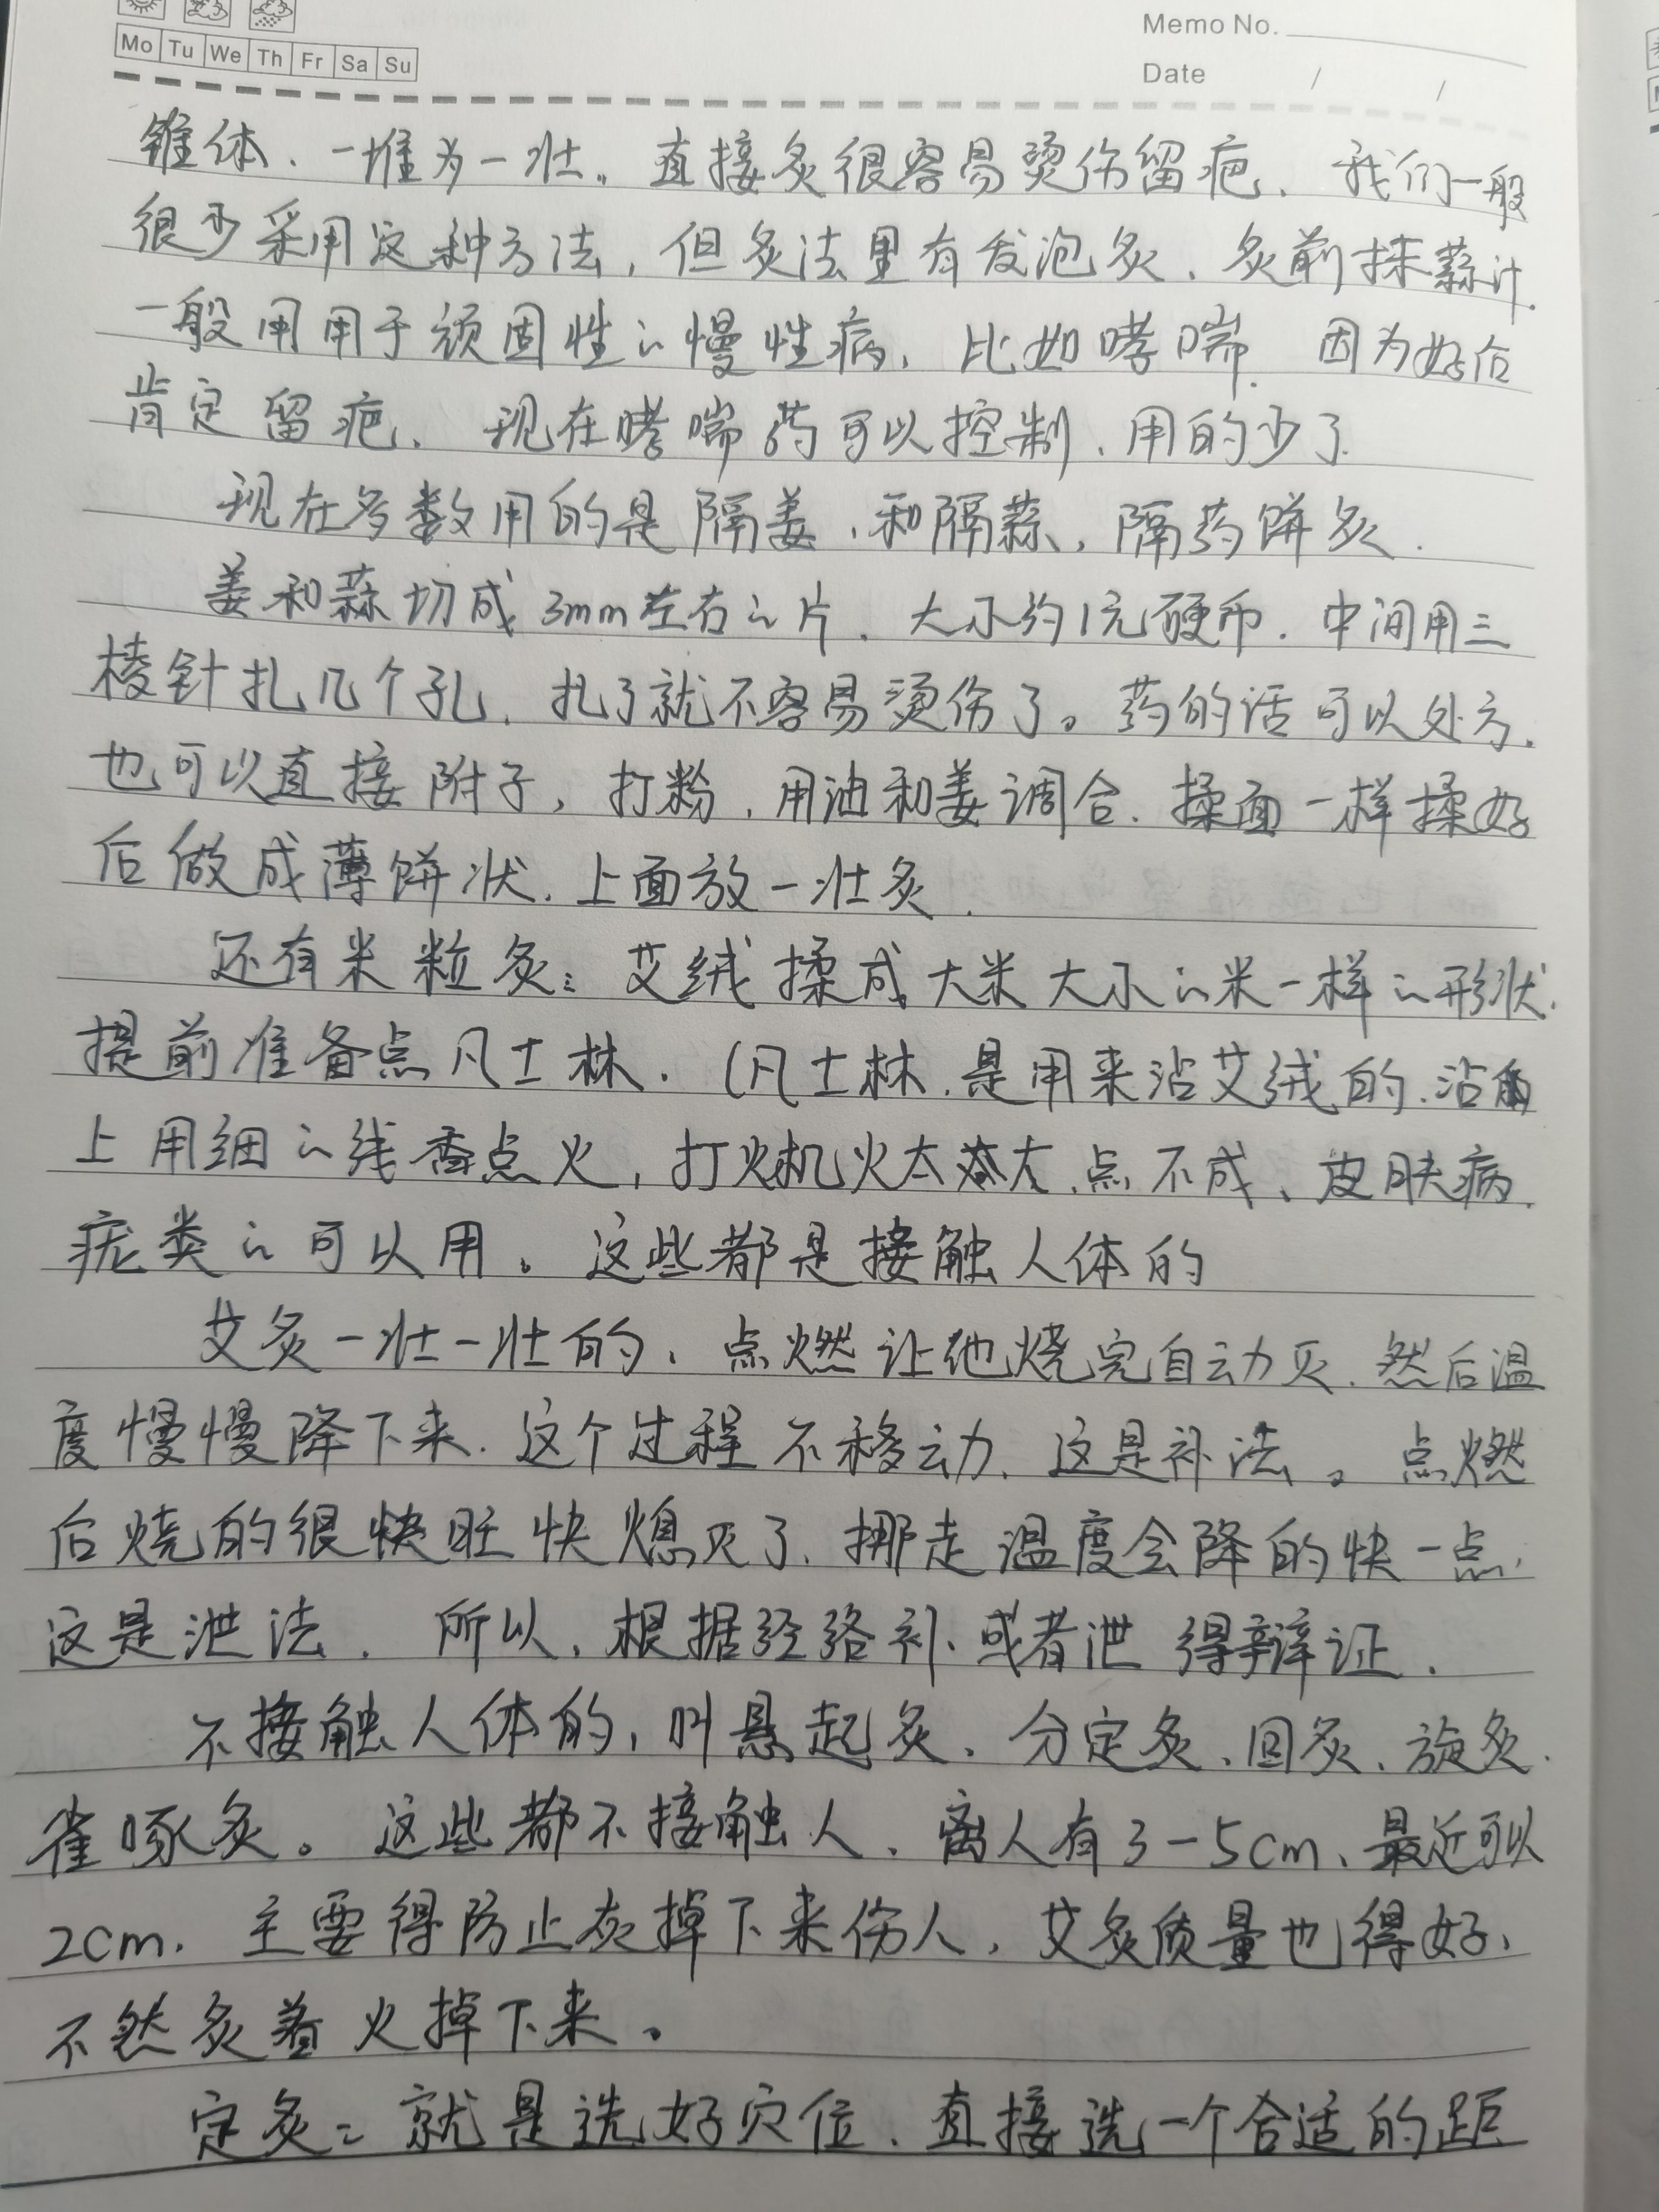 Mo Tu We Th Fr Sa Su
Memo No.
Date / /
锥体、一堆为一壮。直接灸很容易烫伤留疤、我们一般
很少采用这种方法，但灸法里有发泡灸、灸前抹蒜汁.
一般用用于顽固性的慢性病，比如哮喘. 因为好后
肯定留疤、现在哮喘药可以控制、用的少了.
现在多数用的是隔姜、和隔蒜，隔药饼灸.
姜和蒜切成3mm左右的片. 大小约1元硬币. 中间用三
棱针扎几个孔. 扎了就不容易烫伤了。药的话可以处方.
也可以直接附子，打粉. 用油和姜调合. 揉面一样揉好
后做成薄饼状. 上面放一壮灸.
还有米粒灸：艾绒揉成大米大小的米一样的形状.
提前准备点凡士林. (凡士林.是用来沾艾绒的.沾
上用细的线香点火，打火机火太大.点不成、皮肤病.
疣类的可以用。这些都是接触人体的
艾灸一壮一壮的、点燃让他烧完自动灭. 然后温
度慢慢降下来. 这个过程不移动. 这是补法。点燃
后烧的很快旺快熄灭了. 挪走温度会降的快一点，
这是泄法. 所以、根据经络补或者泄得辩证.
不接触人体的，叫悬起灸、分定灸、回灸、旋灸.
雀啄灸。这些都不接触人、离人有3-5cm、最近可以
2cm. 主要得防止灰掉下来伤人，艾灸质量也得好，
不然灸着火掉下来。
定灸：就是选好穴位、直接选一个合适的距